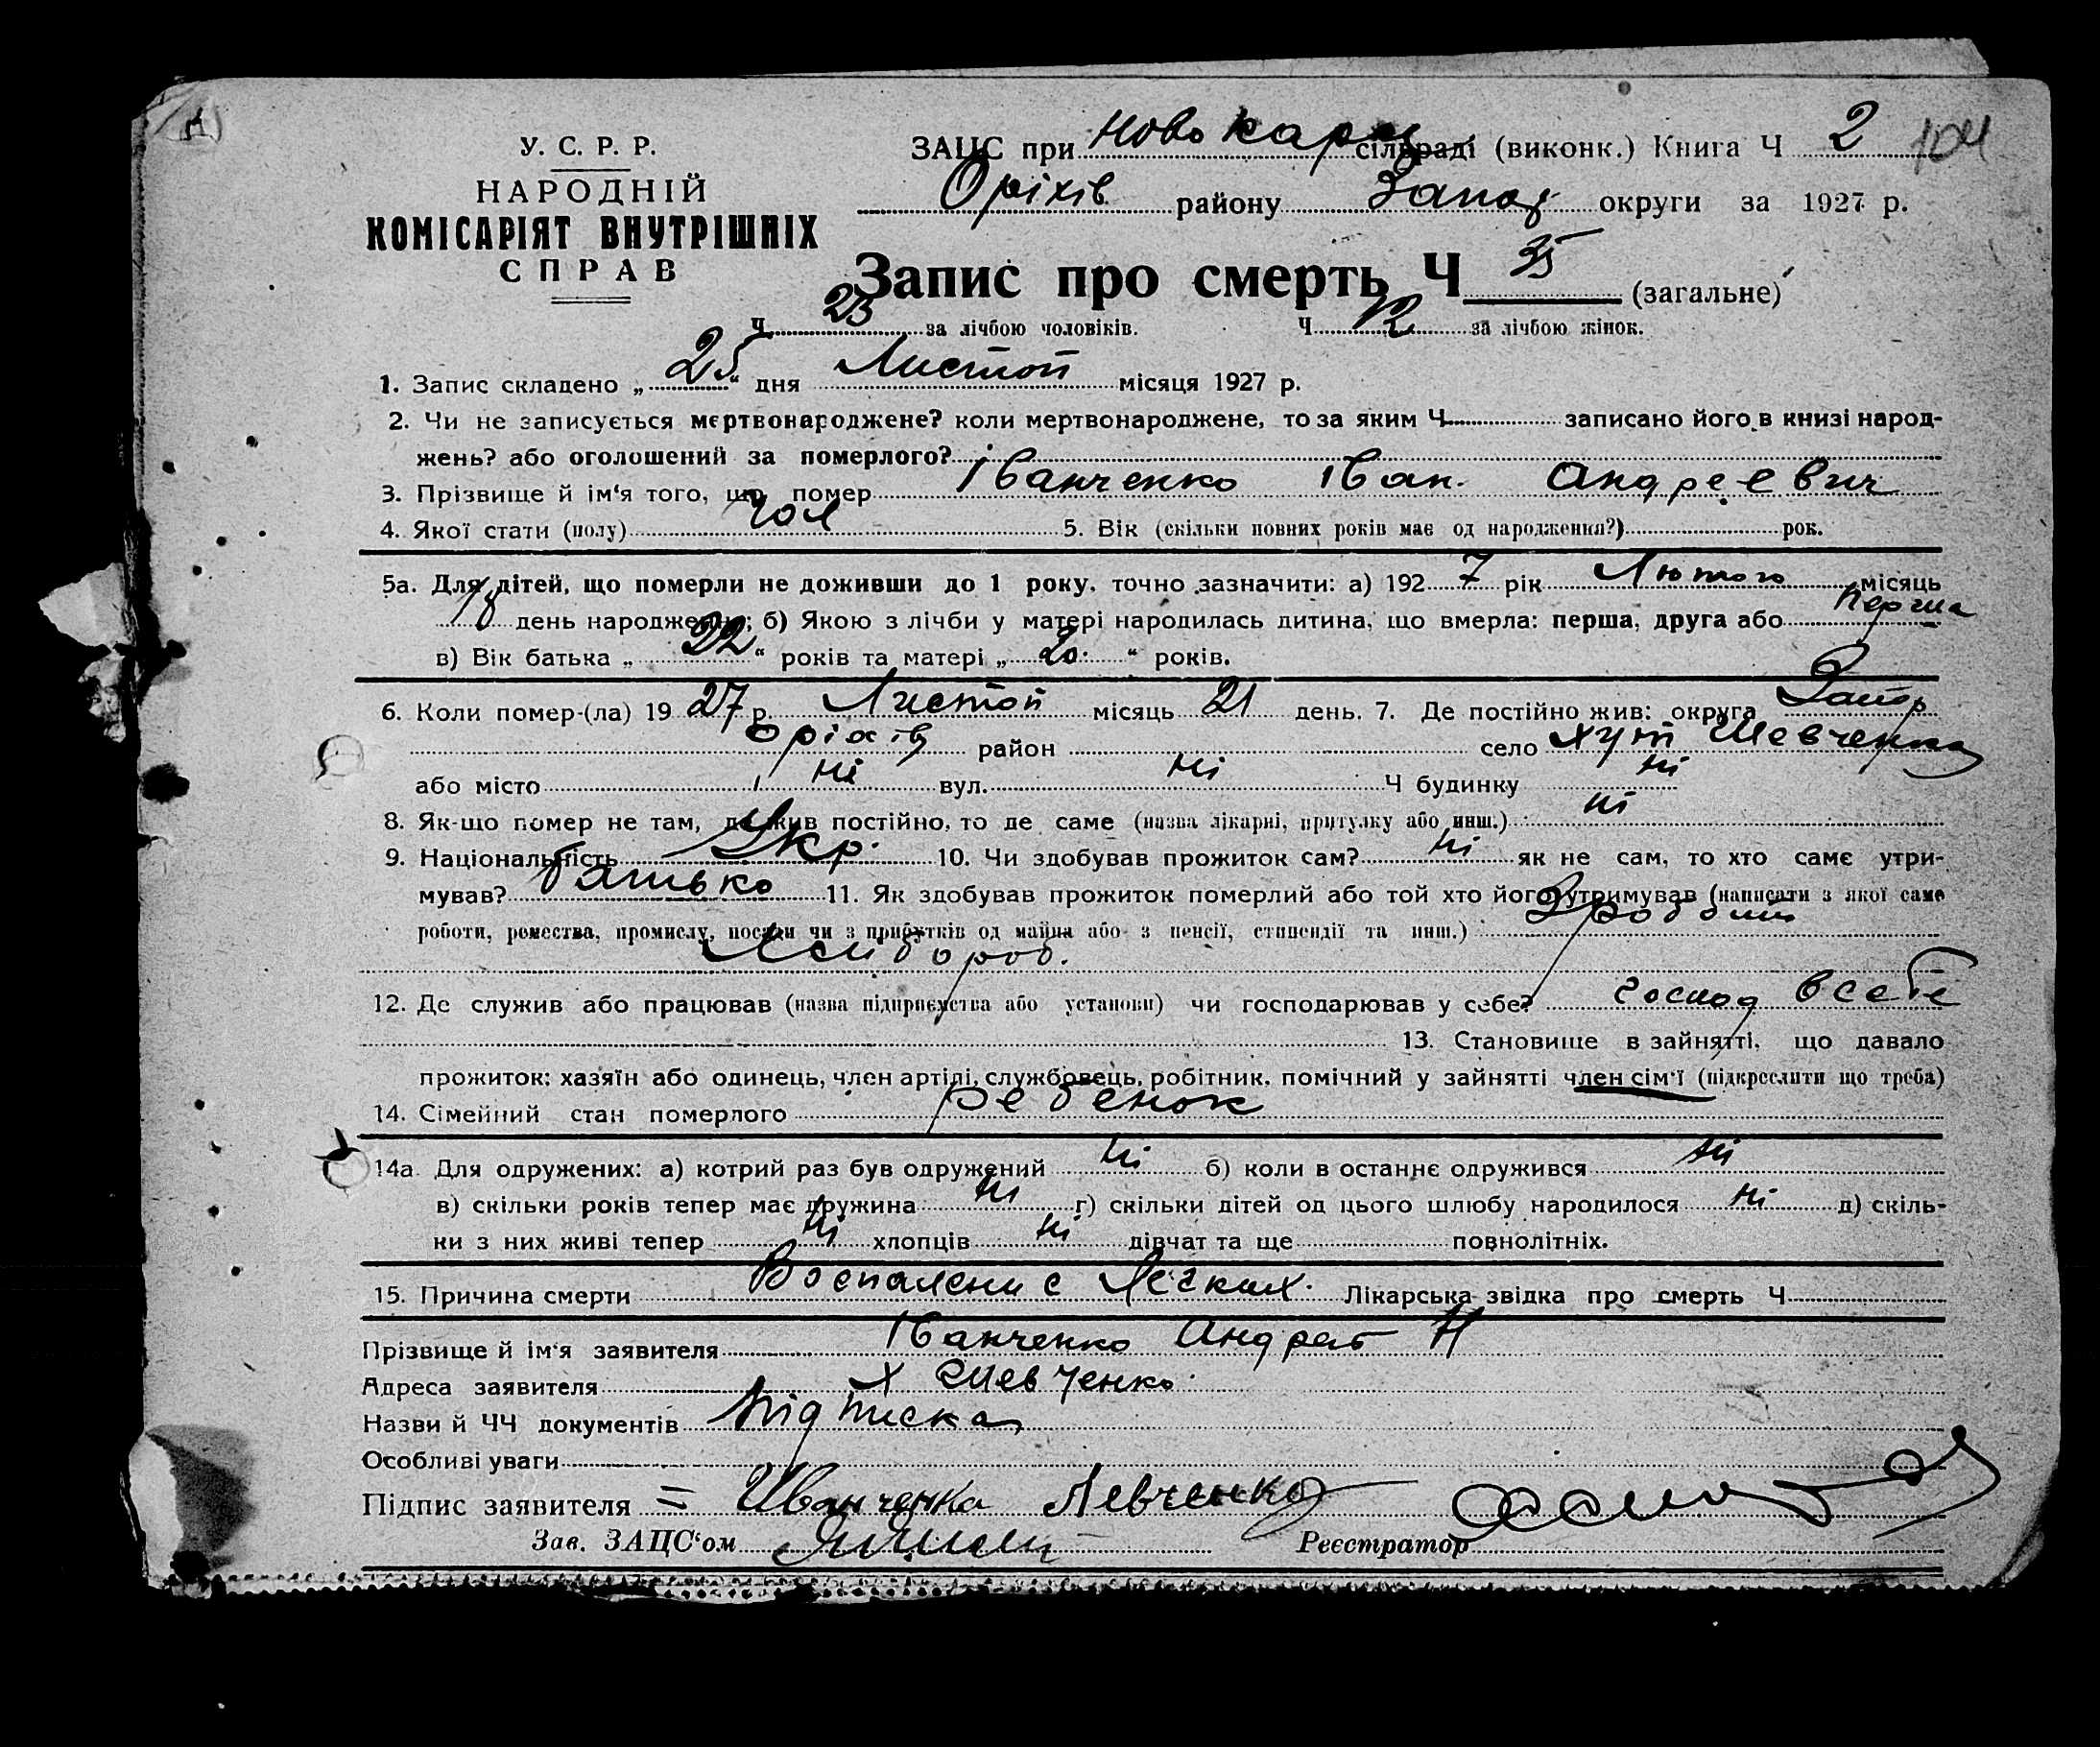 У. С. Р. Р.
НАРОДНІЙ
КОМІСАРІЯТ ВНУТРІШНІХ
СПРАВ
ЗАЦС при Ново карл сільраді (виконк.) Книга Ч 2 104
Оріхів району Запор округи за 1927 р.
Запис про смерть Ч 35 (загальне)
Ч 23 за лічбою чоловіків. Ч 12 за лічбою жінок.
1. Запис складено „ 25 “ дня Листоп місяця 1927 р.
2. Чи не записується мертвонароджене? коли мертвонароджене, то за яким Ч записано його в книзі народ-
жень? або оголошений за померлого?
3. Прізвище й ім‘я того, що помер Іванченко Іван Андреевич
4. Якої стати (полу) Чол 5. Вік (скільки повних років має од народження?) рок.
5а. Для дітей, що померли не доживши до 1 року, точно зазначити: а) 1927 рік Лютого місяць
18 день народження; б) Якою з лічби у матері народилась дитина, що вмерла: перша, друга або перша
в) Вік батька „ 22 “ років та матері „ 20 “ років.
6. Коли помер-(ла) 1927 р. Листоп місяць 21 день. 7. Де постійно жив: округа Запор
Оріхів район село Хут Шевченко
або місто ні вул. ні Ч будинку ні
8. Як-що помер не там, де жив постійно, то де саме (назва лікарні, притулку або инш.) ні
9. Національність Укр. 10. Чи здобував прожиток сам? ні як не сам, то хто саме утри-
мував? батько 11. Як здобував прожиток померлий або той хто його утримував (написати з якої саме
роботи, ремества, промислу, посади чи з прибутків од майна або з пенсії, стипендії та инш.)
Хлибороб.
12. Де служив або працював (назва підприємства або установи) чи господарював у себе? господ в себе
13. Становище в зайнятті, що давало
прожиток: хазяїн або одинець, член артілі, службовець, робітник, помічний у зайнятті член сім‘ї (підкреслити що треба)
14. Сімейний стан померлого Ребенок
14а. Для одружених: а) котрий раз був одружений ні б) коли в останнє одружився ні
в) скільки років тепер має дружина ні г) скільки дітей од цього шлюбу народилося ні д) скіль-
ки з них живі тепер ні хлопців ні дівчат та ще повнолітніх.
15. Причина смерти Воспаление Легких. Лікарська звідка про смерть Ч
Прізвище й ім‘я заявителя Іванченко Андрей Н
Адреса заявителя Х Шевченко
Назви й ЧЧ документів Підписка
Особливі уваги
Підпис заявителя = Иванченка Левченко
Зав. ЗАЦС‘ом Реєстратор